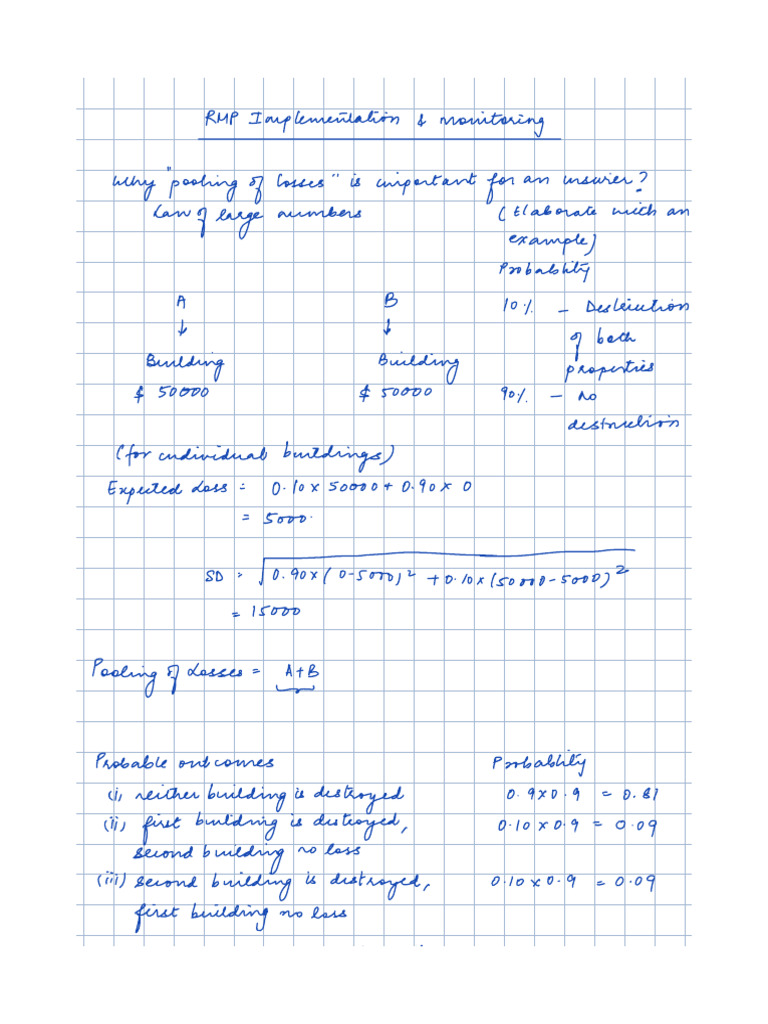 RMP Implementation & Monitoring
Why "pooling of losses" is important for an insurer?
Law of large numbers (Elaborate with an
example)
Probablity
A B 10% - Destruction
of both
Building Building properties
$ 50000 $ 50000 90% - no
destruction
(for individual buildings)
Expected Loss = 0.10 x 50000 + 0.90 x 0
= 5000.
SD = √0.90x(0-5000)² + 0.10x(50000-5000)²
= 15000
Pooling of Losses = A+B
Probable outcomes Probablity
(i) neither building is destroyed 0.9x0.9 = 0.81
(ii) first building is destroyed, 0.10x0.9 = 0.09
second building no loss
(iii) second building is destroyed, 0.10x0.9 = 0.09
first building no loss